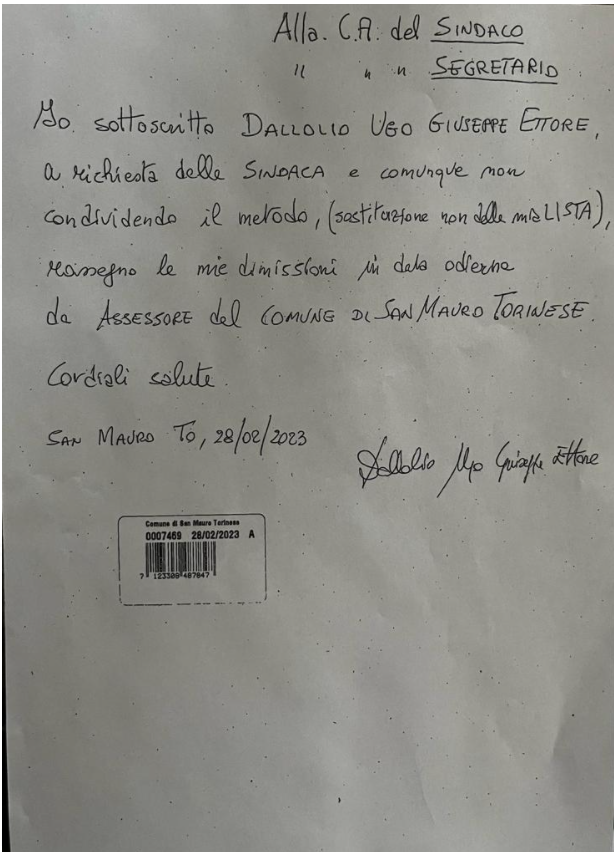 Alla. C.A. del SINDACO
" " " SEGRETARIO
Io sottoscritto DALLOLIO UGO GIUSEPPE ETTORE,
a richiesta della SINDACA e comunque non
condividendo il metodo, (sostituzione non della mia LISTA),
rassegno le mie dimissioni in data odierna
da ASSESSORE del COMUNE DI SAN MAURO TORINESE.
Cordiali salute.
SAN MAURO TO, 28/02/2023
Dallolio Ugo Giuseppe Ettore
Comune di San Mauro Torinese
0007469 28/02/2023 A
7 123309 487847